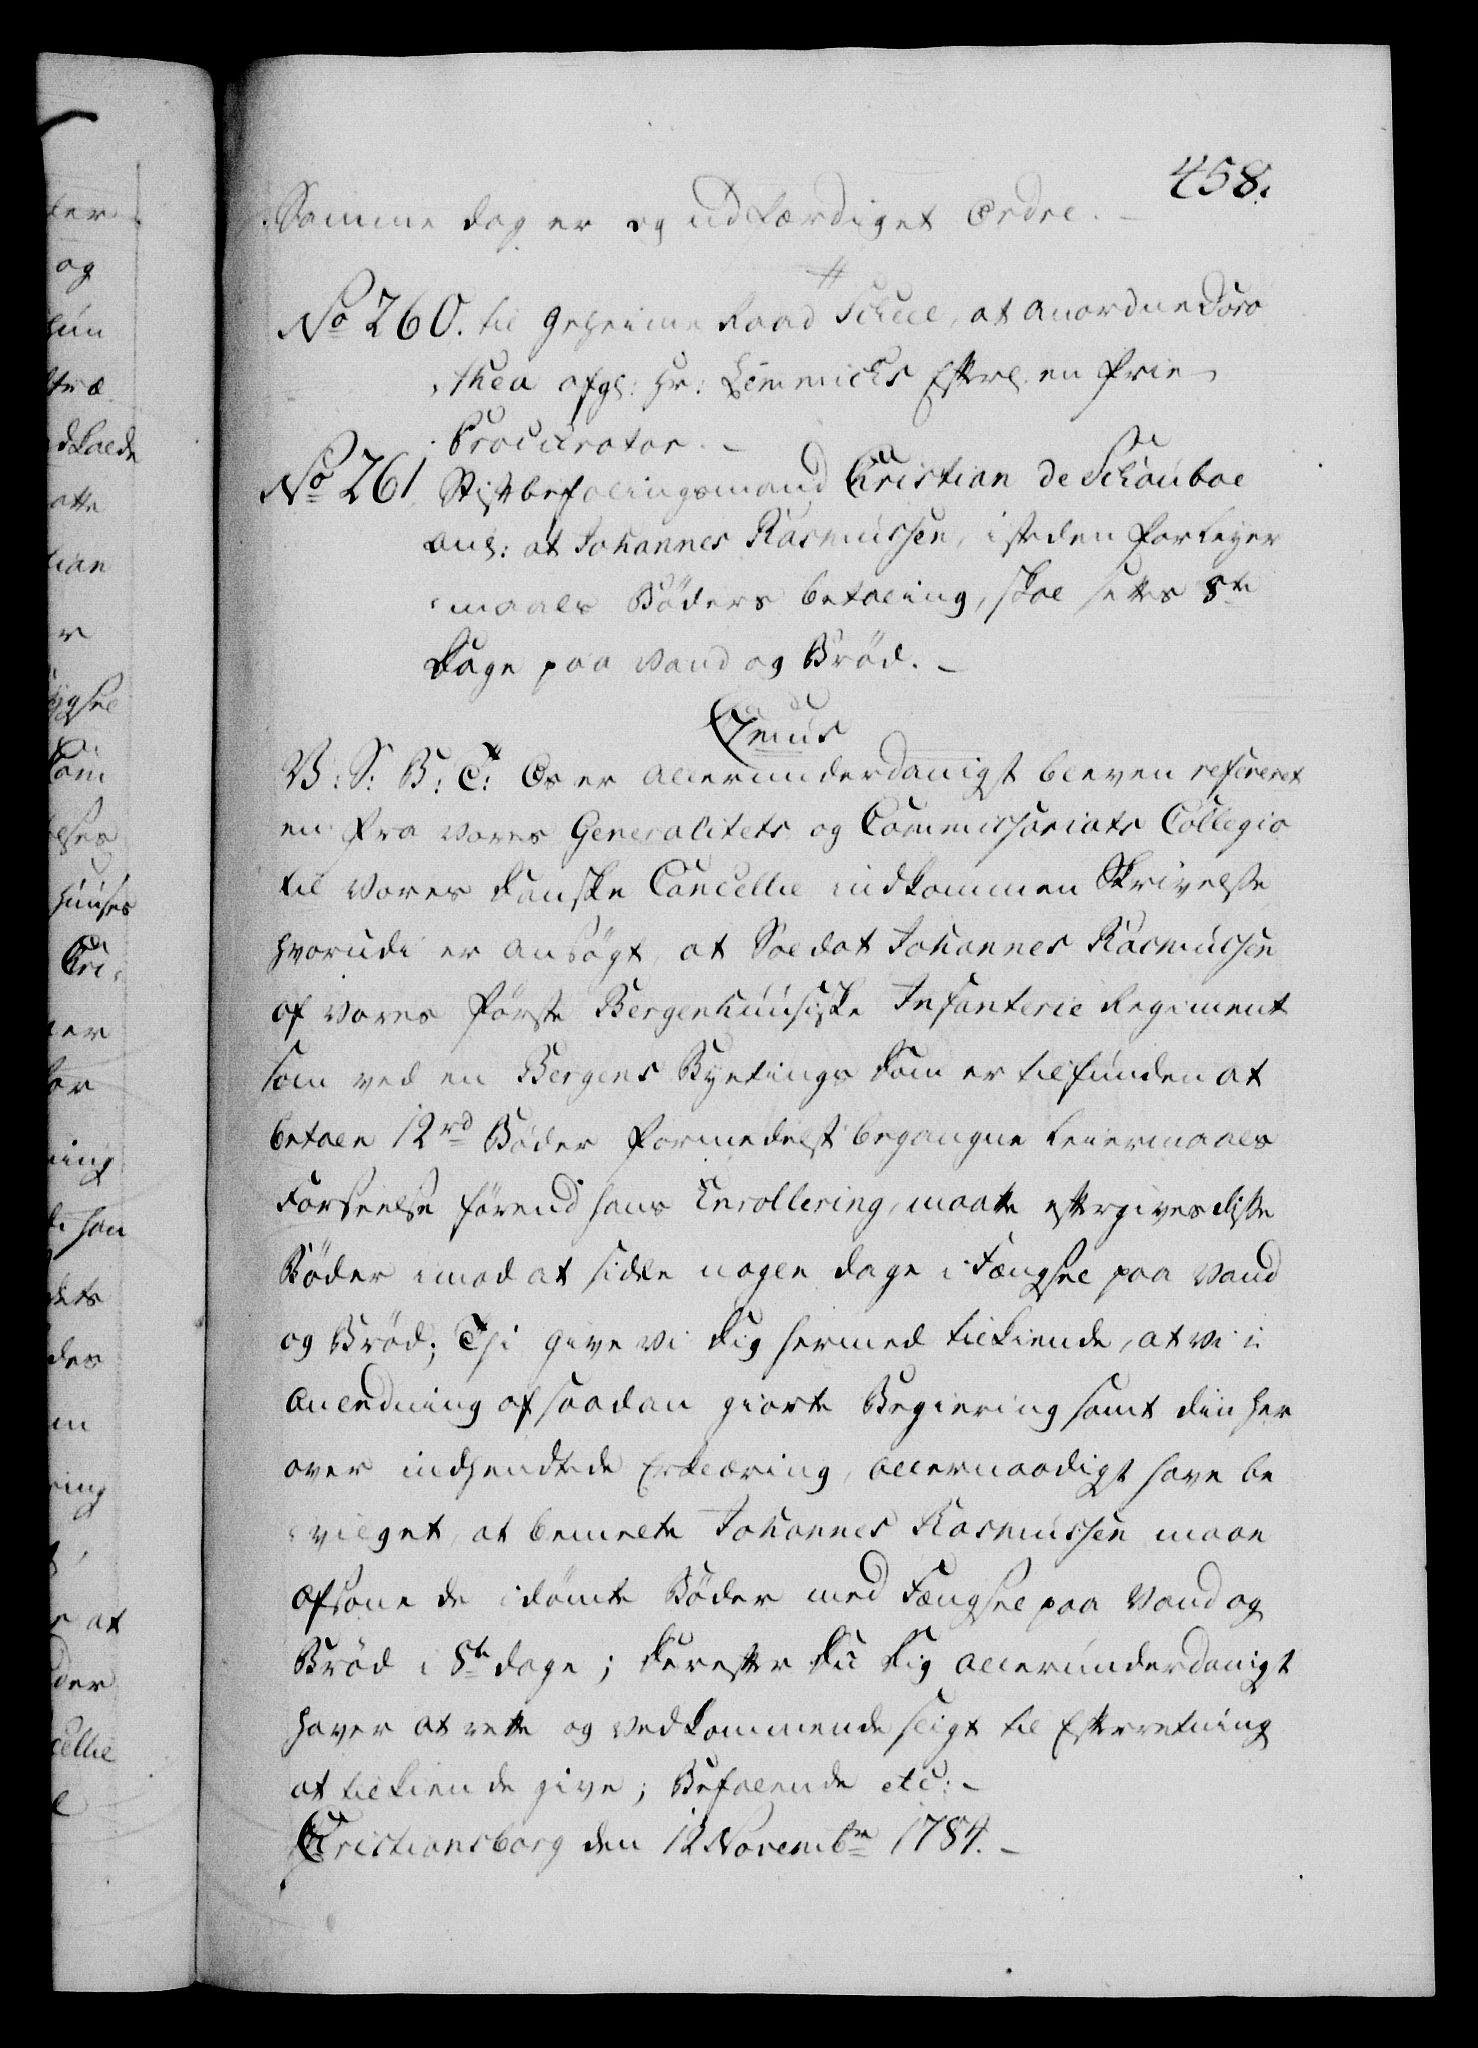 458.
Samme dag er og udfærdiget Ordre.
No 260. til Geheime Raad Scheel, at anordne Doro
thea afgl: Hr: Lemmichs Efterl. en frie
Procurator.
No 261 Stiftbefalingsmand Christian de Schouboe
anl: at Johannes Rasmussen, isteden for Leyer
maals Böders betaling, skal settes 8te
Dage paa Vand og Brød.
V: S: B: T: Os er allerunderdanigst bleven refereret
en fra Vores Generalitets og Commissariats Collegio
til Vores Danske Cancellie indkommen Skrivelse
hvorudi er ansøgt, at Soldat Johannes Rasmussen
af Vores første Bergenhuusiske Infanterie Regiment
som ved en Bergens Byetings Dom er tilfunden at
betale 12 rd Bøder formedelst begangne Leiermaals
Forseelse førend hans Enrollering, maatte eftergives disse
Bøder imod at sidde nogle dage i Fængsel paa Vand
og Brød; Thi give Vi Dig hermed tilkiende, at Vi i
Anledning af saadan giorte Begiering samt din her
over indhendtede Erklæring, allernaadigst have be
vilget, at bemelte Johannes Rasmussen maae
afsone de idømte Bøder med Fængsel paa Vand og
Brød i 8te dage; Derefter Du Dig allerunderdanigst
haver at rette og Vedkommende sligt til Efterretning
at tilkiende give; Befalende etc:
Christiansborg den 12 Novembr 1784.